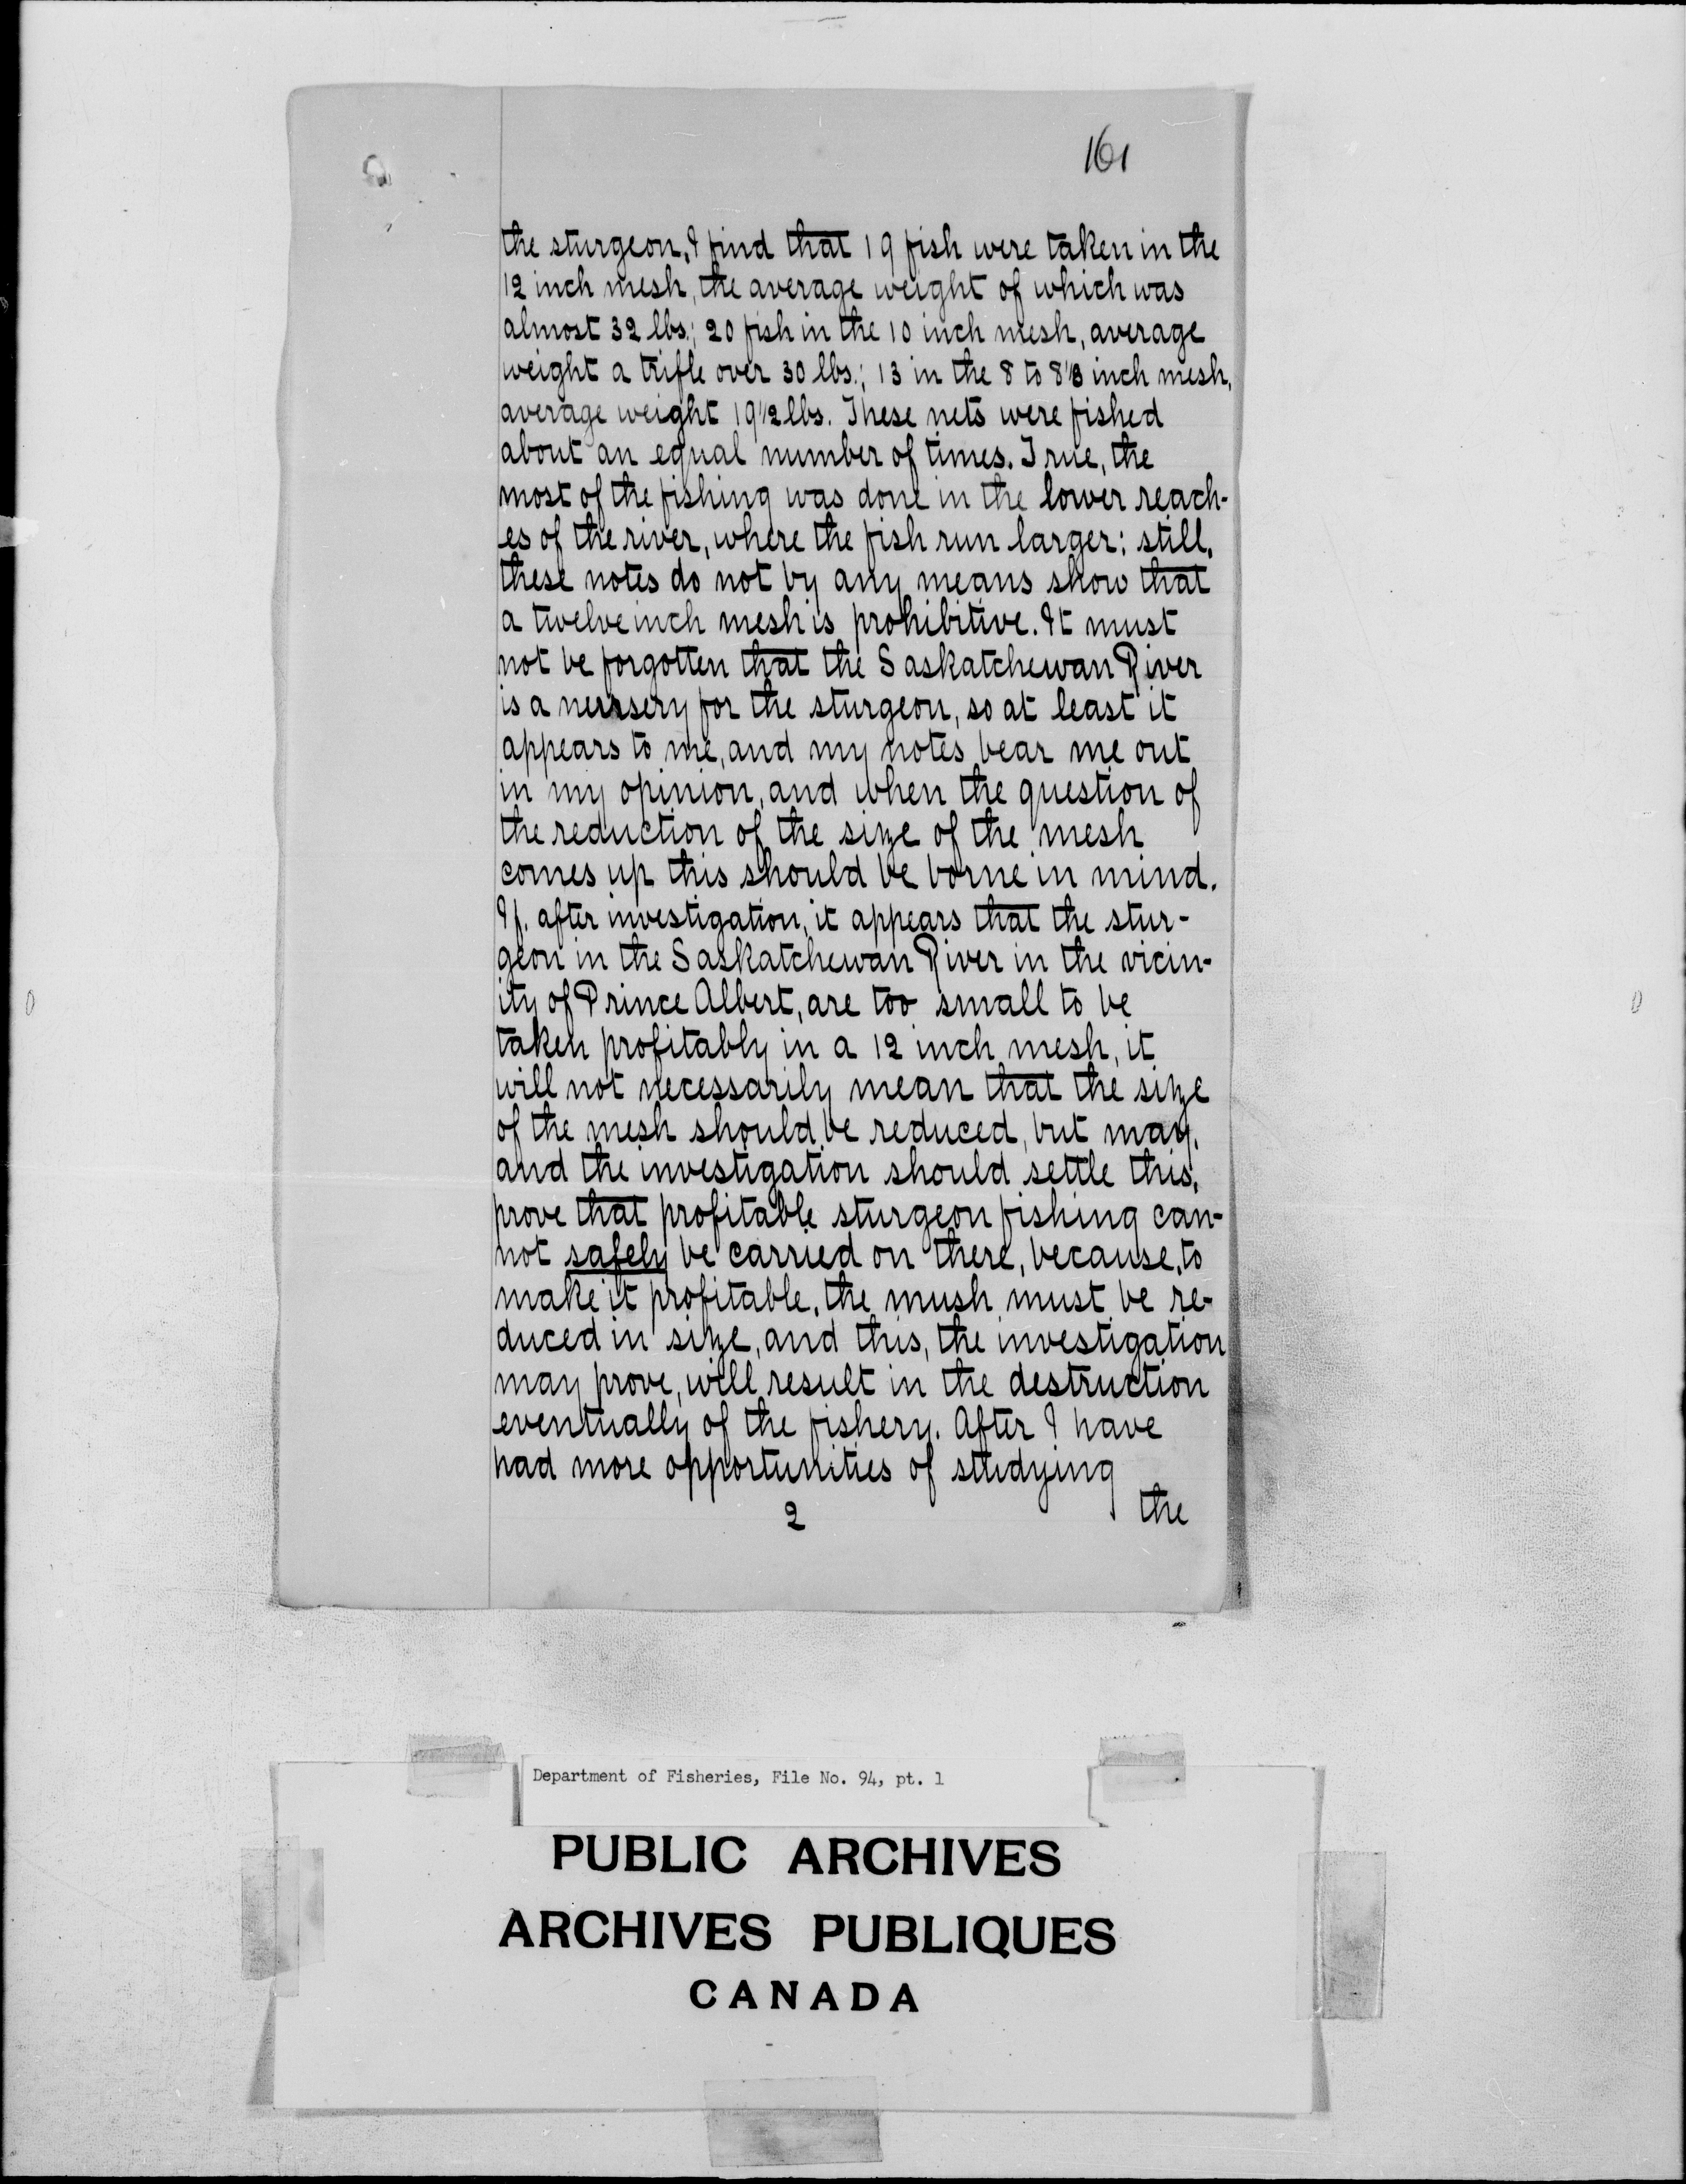 161
the sturgeon, I find that 19 fish were taken in the
12 inch mesh, the average weight of which was
almost 32 lbs.; 20 fish in the 10 inch mesh, average
weight a trifle over 30 lbs.; 13 in the 8 to 8 1/8 inch mesh,
average weight 19 1/2 lbs. These nets were fished
about an equal number of times. True, the
most of the fishing was done in the lower reach-
es of the river, where the fish run larger: still,
these notes do not by any means show that
a twelve inch mesh is prohibitive. It must
not be forgotten that the Saskatchewan River
is a nursery for the sturgeon, so at least it
appears to me, and my notes bear me out
in my opinion, and when the question of
the reduction of the size of the mesh
comes up this should be borne in mind.
If, after investigation, it appears that the stur-
geon in the Saskatchewan River in the vicin-
ity of Prince Albert, are too small to be
taken profitably in a 12 inch mesh, it
will not necessarily mean that the size
of the mesh should be reduced, but may,
and the investigation should settle this,
prove that profitable sturgeon fishing can-
not safely be carried on there, because, to
make it profitable, the mush must be re-
duced in size, and this, the investigation
may prove, will result in the destruction
eventually of the fishery. After I have
had more opportunities of studying
the
2
Department of Fisheries, File No. 94, pt. 1
PUBLIC ARCHIVES
ARCHIVES PUBLIQUES
CANADA